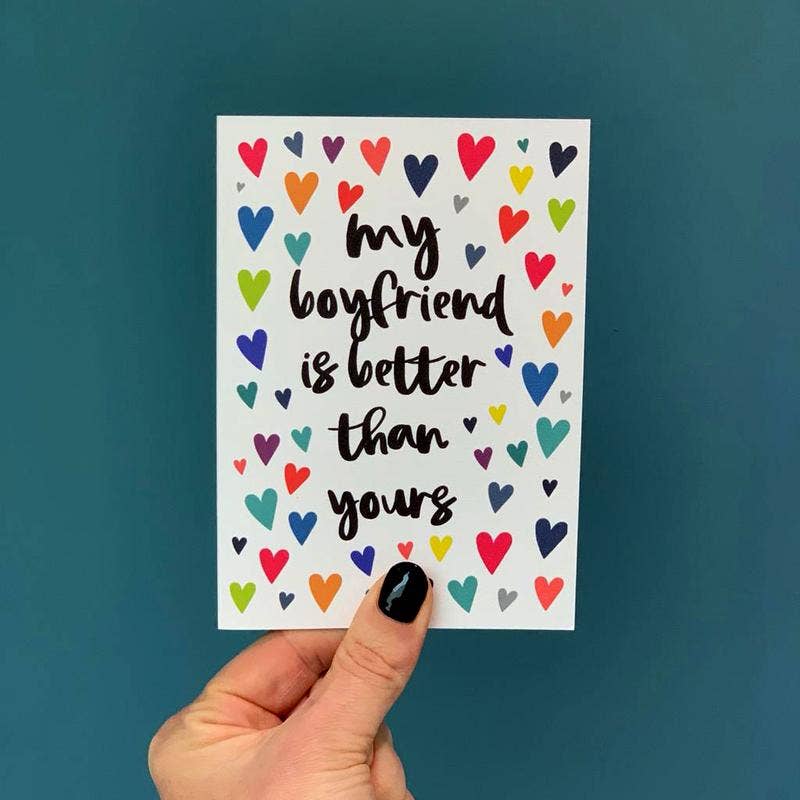 my
boyfriend
is better
than
yours